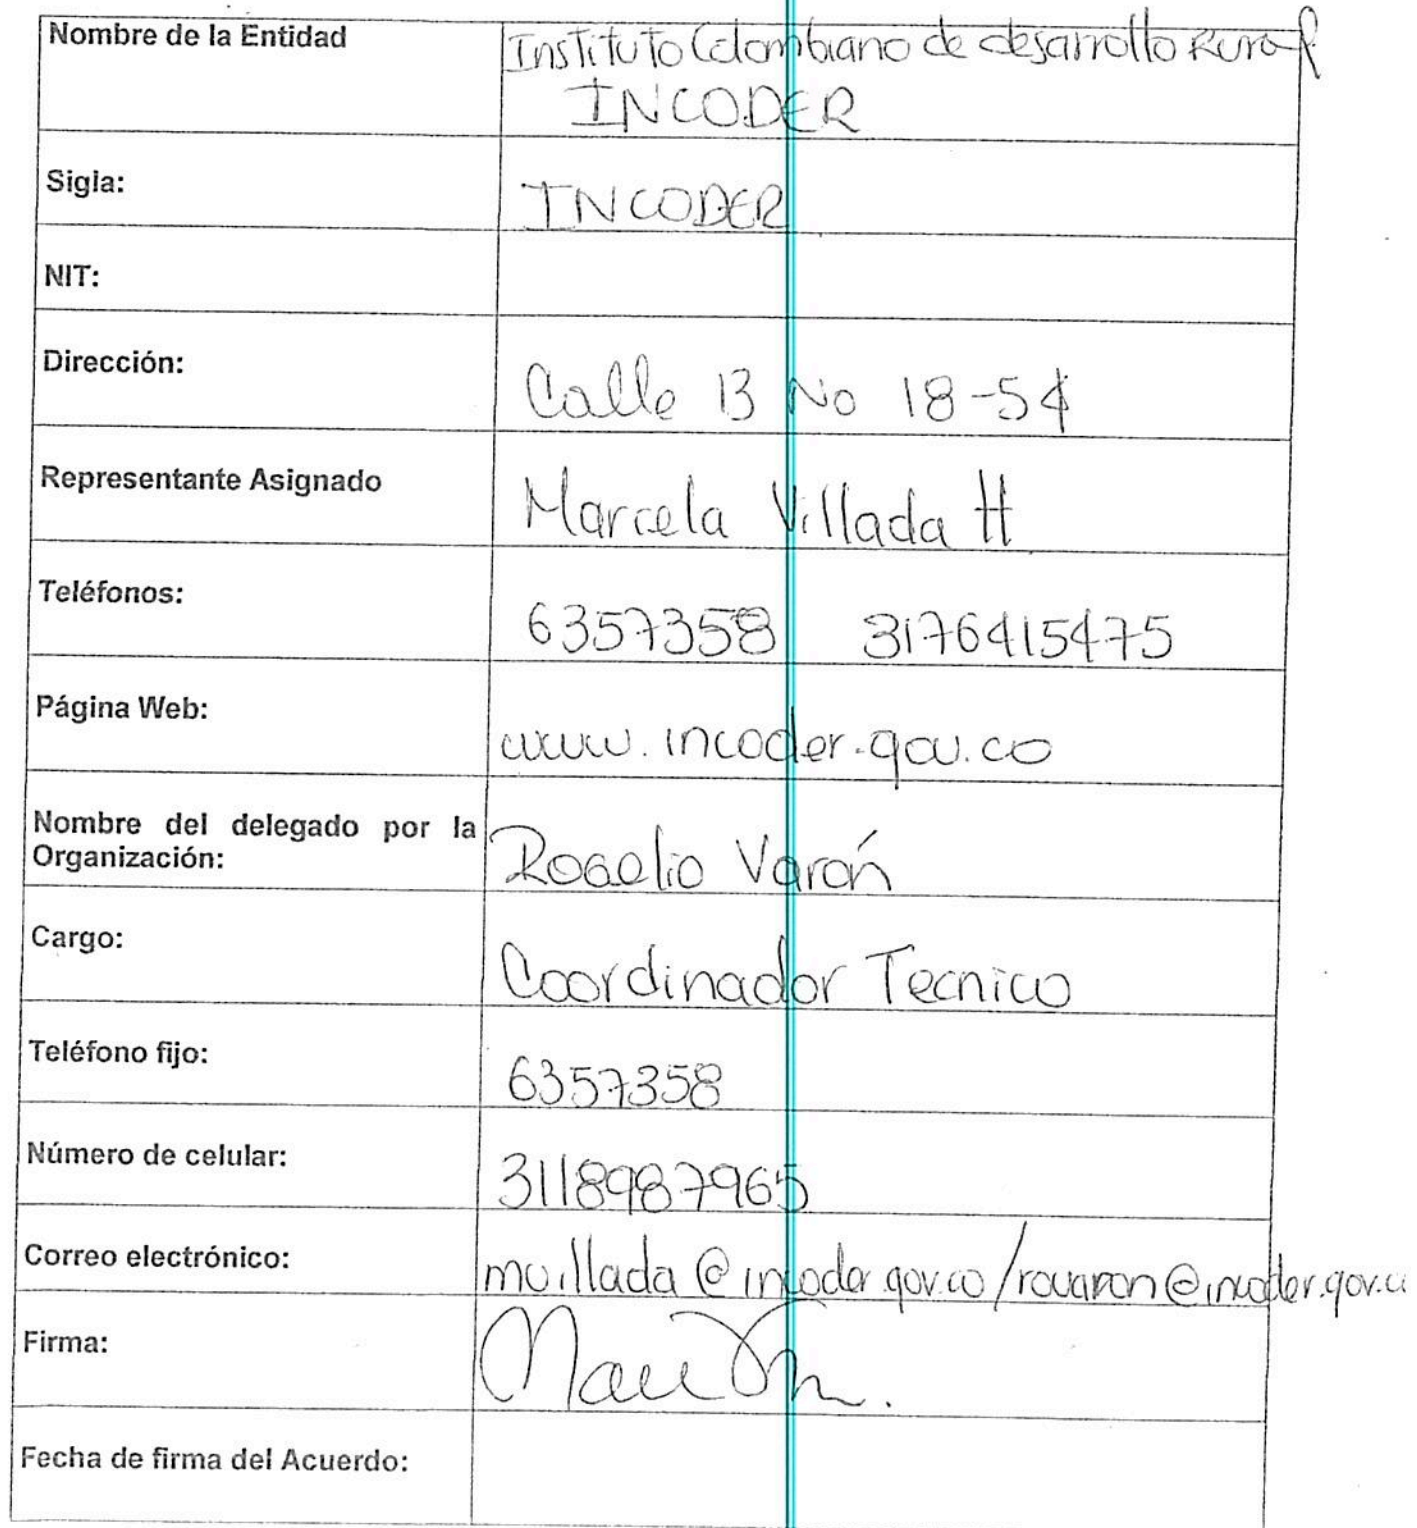 Nombre de la Entidad
Instituto Colombiano de desarrollo Rural
INCODER
Sigla:
INCODER
NIT:
Dirección:
Calle 13 No 18-54
Representante Asignado
Marcela Villada H
Teléfonos:
6357358 3176415475
Página Web:
www.incoder.gov.co
Nombre del delegado por la
Organización:
Rogelio Varón
Cargo:
Coordinador Tecnico
Teléfono fijo:
6357358
Número de celular:
3118987965
Correo electrónico:
mvillada@incoder.gov.co/rovaron@incoder.gov.co
Firma:
Fecha de firma del Acuerdo: